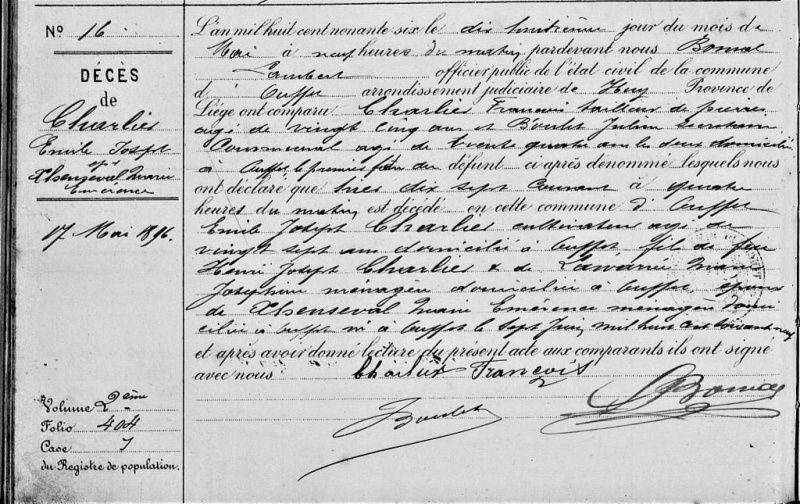 Nº 16.
DÉCÈS
de
Charlier
Emile Joseph
epx
Xhenseval Marie
Emérence
17 Mai 1896.
Volume 2ème
Folio 404
Case 7
du Registre de population.
L'an mil huit cent nonante-six le dix huitième jour du mois de
Mai à neuf heures du matin, pardevant nous Bonmal
Lambert officier public de l'état civil de la commune
d'Ouffet arrondissement judiciaire de Huy Province de
Liège ont comparu Charlier François tailleur de pierres
agé de vingt cinq ans et Boulet Julien secrétaire
Communal agé de trente quatre ans les deux domiciliés
à Ouffet le premier frère du défunt ci-après dénommé lesquels nous
ont déclaré que hier dix sept courant à quatre
heures du matin est décédé en cette commune d'Ouffet
Emile Joseph Charlier cultivateur agé de
vingt sept ans domicilié à Ouffet, fils de feu
Henri Joseph Charlier & de Lawarrée Marie
Josephine ménagère domiciliée à Ouffet, époux
de Xhenseval Marie Emérence ménagère domi
ciliée à Ouffet né à Ouffet le sept Juin mil huit cent soixante neuf
et après avoir donné lecture du présent acte aux comparants ils ont signé
avec nous. Charlier François
J Boulet
L Bonmal